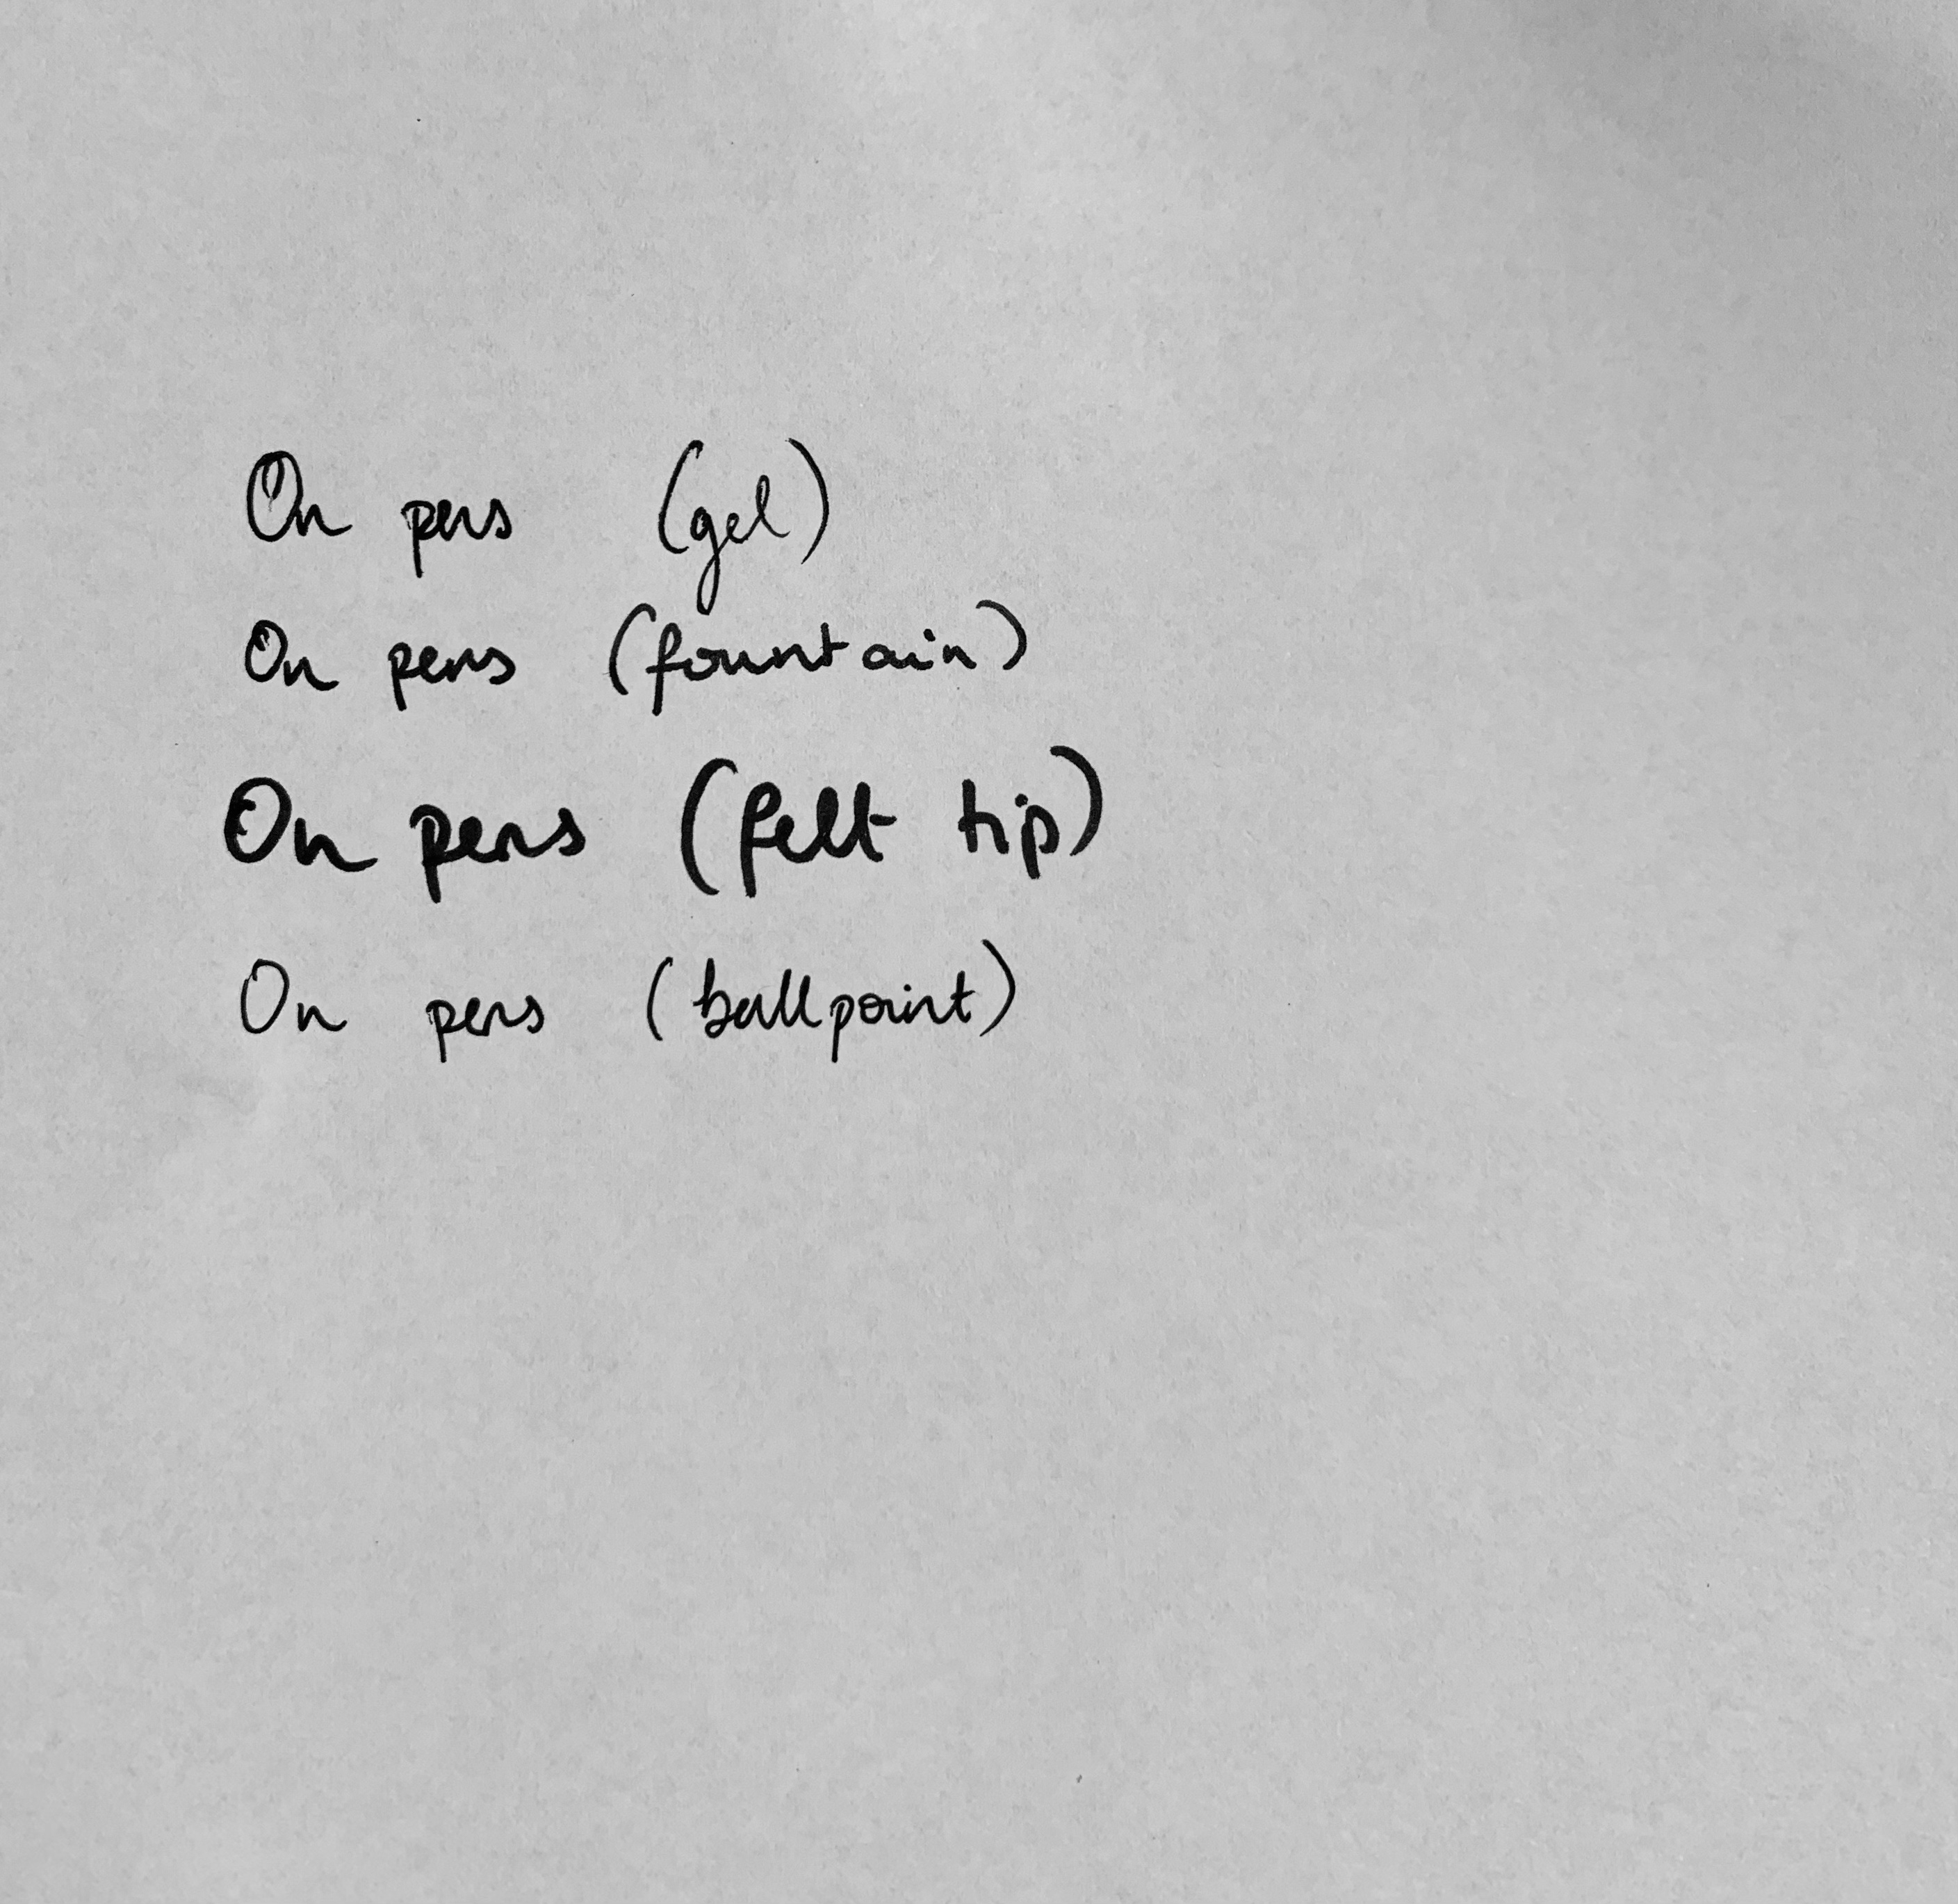 On pens (gel)
On pens (fountain)
On pens (felt tip)
On pens (ballpoint)